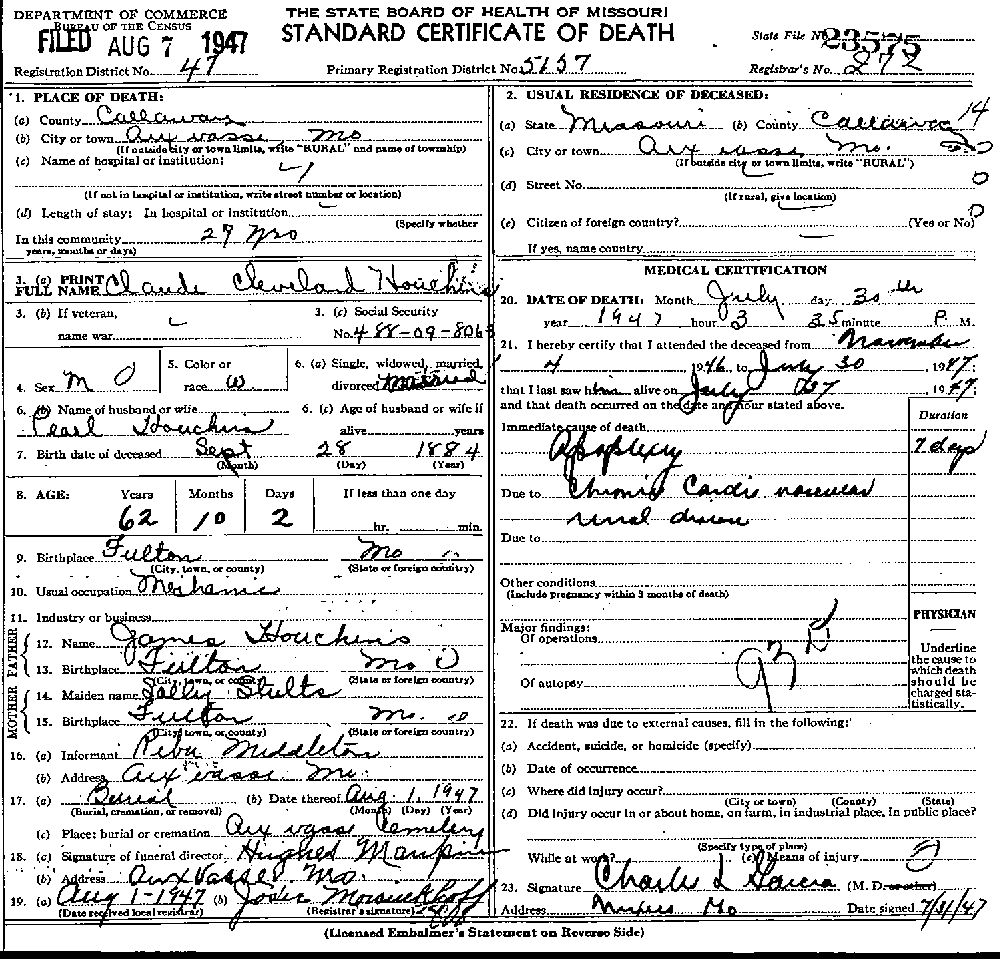 DEPARTMENT OF COMMERCE
BUREAU OF THE CENSUS
FILED AUG 7 1947
Registration District No. 47
THE STATE BOARD OF HEALTH OF MISSOURI
STANDARD CERTIFICATE OF DEATH
Primary Registration District No. 5157
State File No. 23575
Registrar's No. 272
1. PLACE OF DEATH:
(a) County Callaway
(b) City or town Aux vasse Mo
(If outside city or town limits, write "RURAL" and name of township)
(c) Name of hospital or institution:
(If not in hospital or institution, write street number or location)
(d) Length of stay: In hospital or institution
(Specify whether
In this community 27 yrs
years, months or days)
3. (a) PRINT FULL NAME Claude Cleveland Houchins
3. (b) If veteran,
name war
3. (c) Social Security
No. 488-09-8063
4. Sex M
5. Color or
race W
6. (a) Single, widowed, married,
divorced Married
6. (b) Name of husband or wife
Pearl Houchins
6. (c) Age of husband or wife if
alive years
7. Birth date of deceased Sept 28 1884
(Month) (Day) (Year)
8. AGE: Years Months Days If less than one day
62 10 2 hr. min.
9. Birthplace Fulton Mo
(City, town, or county) (State or foreign country)
10. Usual occupation Mechanic
11. Industry or business
FATHER
12. Name James Houchins
13. Birthplace Fulton Mo
(City, town, or county) (State or foreign country)
MOTHER
14. Maiden name Sally Stults
15. Birthplace Fulton Mo.
(City, town, or county) (State or foreign country)
16. (a) Informant Middleton
(b) Address Aux vasse Mo.
17. (a) Burial (b) Date thereof Aug. 1, 1947
(Burial, cremation, or removal) (Month) (Day) (Year)
(c) Place: burial or cremation Aux vasse Cemetery
18. (c) Signature of funeral director Hughes Maupin
(b) Address Aux Vasse Mo.
19. (a) Aug 1-1947 (b)
(Date received local registrar) (Registrar's signature)
2. USUAL RESIDENCE OF DECEASED:
14
(a) State Missouri (b) County Callaway
(c) City or town Aux vasse Mo.
(If outside city or town limits, write "RURAL")
(d) Street No. 0
(If rural, give location)
(e) Citizen of foreign country? (Yes or No) 0
If yes, name country
MEDICAL CERTIFICATION
20. DATE OF DEATH: Month July day 30th
year 1947 hour 3 35 minute P. M.
21. I hereby certify that I attended the deceased from November
4 1946, to July 30, 1947;
that I last saw him alive on July 1947
and that death occurred on the date and hour stated above.
Duration
Immediate cause of death
Apoplexy 7 days
Due to Chronic Cardio vascular
renal disease
Due to
Other conditions
(Include pregnancy within 3 months of death)
Major findings:
Of operations
Of autopsy
PHYSICIAN
Underline the cause to which death should be charged statistically.
22. If death was due to external causes, fill in the following:
(a) Accident, suicide, or homicide (specify)
(b) Date of occurrence
(c) Where did injury occur?
(City or town) (County) (State)
(d) Did injury occur in or about home, on farm, in industrial place, in public place?
(Specify type of place)
While at work? (e) Means of injury
23. Signature Charles L Garcia (M. D. or other)
Address Mo Date signed 7/31/47
(Licensed Embalmer's Statement on Reverse Side)